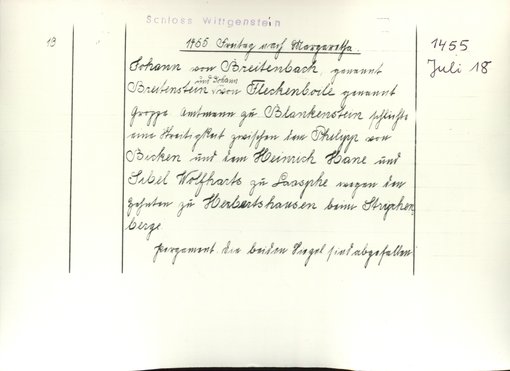 Schloss Wittgenstein
13
1455 Freitag nach Margaretha
1455
Juli 18
Johann von Breitenbach, genannt
Breitenstein, und Johann von Fleckenbole genannt
Groppe Amtmann zu Blankenstein schlichte
eine Streitigkeit zwischen dem Philipp von
Bicken und dem Heinrich Hane und
Sibel Wolfharts zu Laasphe wegen den
Zehnten zu Herbertshausen beim
berge
Pergament die beiden Siegel sind abgefallen